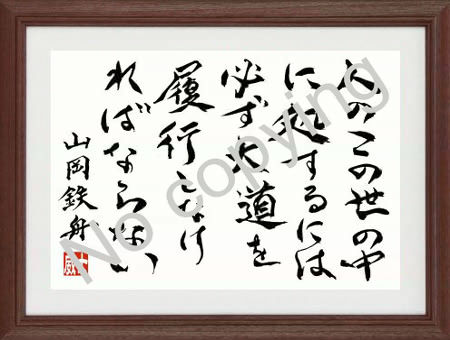 人のこの世の中
に処するには
必ず大道を
履行しなけ
ればならない
山岡鉄舟
No copying